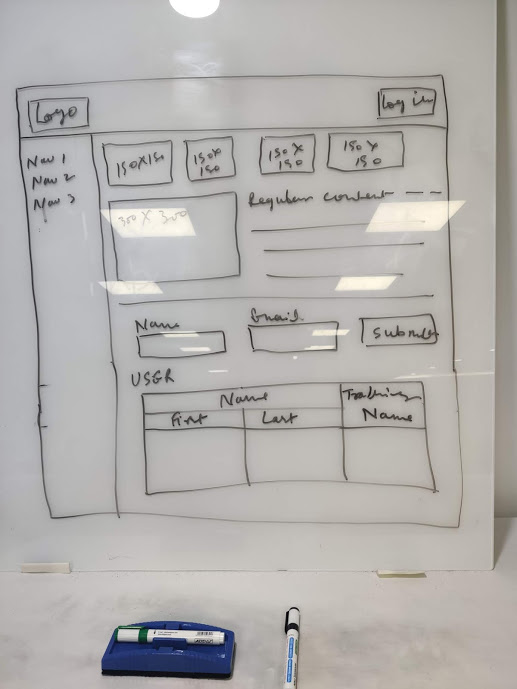 Logo
Log in
Nav 1
Nav 2
Nav 3
150X150
150X
150
150X
150
150X
150
300 X 300
Regular content
Name
Email
Submit
USER
Name
First
Last
Name